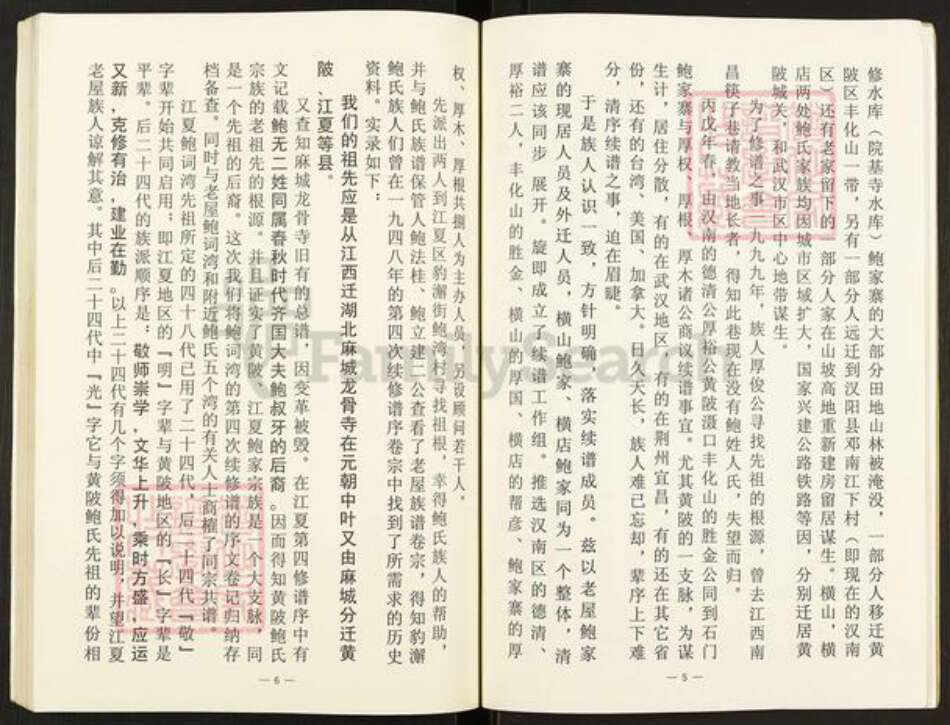 修水库（院基寺水库）鲍家寨的大部分田地山林被淹没，一部分人移迁黄
陂区丰化山一带，另有一部分人远迁到汉阳县邓南江下村（即现在的汉南
区）还有老家留下的一部分人家在山坡高地重新建房留居谋生。横山，横
店两处鲍氏家族均因城市区域扩大，国家兴建公路铁路等因，分别迁居黄
陂城关，和武汉市区中心地带谋生。
为了修谱之事，一九九九年，族人厚俊公寻找先祖的根源，曾去江西南
昌筷子巷请教当地长者，得知此巷现在没有鲍姓人氏，失望而归。
丙戊年春，由汉南的德清公厚裕公黄陂滠口丰化山的胜金公同到石门
鲍家寨与厚权、厚根、厚木诸公商议续谱事宜。尤其黄陂的一支脉，为谋
生计，居住分散，有的在武汉地区，有的在荆州宜昌，有的还在其它省
份，还有的台湾、美国、加拿大。日久天长，族人难已忘却，辈序上下难
分，清序续谱之事，迫在眉睫。
于是族人认识一致，方针明确，落实续谱成员。兹以老屋鲍家
寨的现居人员及外迁人员，横山鲍家、横店鲍家同为一个整体，清
谱应该同步展开。旋即成立了续谱工作组。推选汉南区的德清、
厚裕二人，丰化山的胜金、横山的厚国、横店的帮彦、鲍家寨的厚
— 5 —
权、厚木、厚根共捌人为主办人员，另设顾问若干人。
先派出两人到江夏区豹澥街鲍湾村寻找祖根，幸得鲍氏族人的帮助，
并与鲍氏族谱保管人鲍法桂、鲍立建三公查看了老屋族谱卷宗，得知豹澥
鲍氏族人们曾在一九四八年的第四次续修谱序卷宗中找到了所需求的历史
资料。实录如下：
我们的祖先应是从江西迁湖北麻城龙骨寺在元朝中叶又由麻城分迁黄
陂、江夏等县。
又查知麻城龙骨寺旧有的总谱，因变革被毁。在江夏第四修谱序中有
文记载鲍无二姓同属春秋时代齐国大夫鲍叔牙的后裔。因而得知黄陂鲍氏
宗族的老祖先的根源。并且证实了黄陂、江夏鲍家宗族是一个大支脉，同
是一个先祖的后裔。这次我们将鲍词湾的第四次续修谱的序文卷记归纳存
档备查。同时与老屋鲍词湾和附近鲍氏五个湾的有关人士商榷了同宗共谱。
江夏鲍词湾先祖所定的四十八代已用了二十四代，后二十四代『敬』
字辈开始共同启用；即江夏地区的『明』字辈与黄陂地区的『长』字辈是
平辈。后二十四代的族派顺序是：敬师崇学，文华上升，乘时方盛，应运
又新，克修有治，建业在勤。以上二十四代有几个字须得加以说明，并望江夏
老屋族人谅解其意。其中后二十四代中『光』字它与黄陂鲍氏先祖的辈份相
— 6 —
FamilySearch